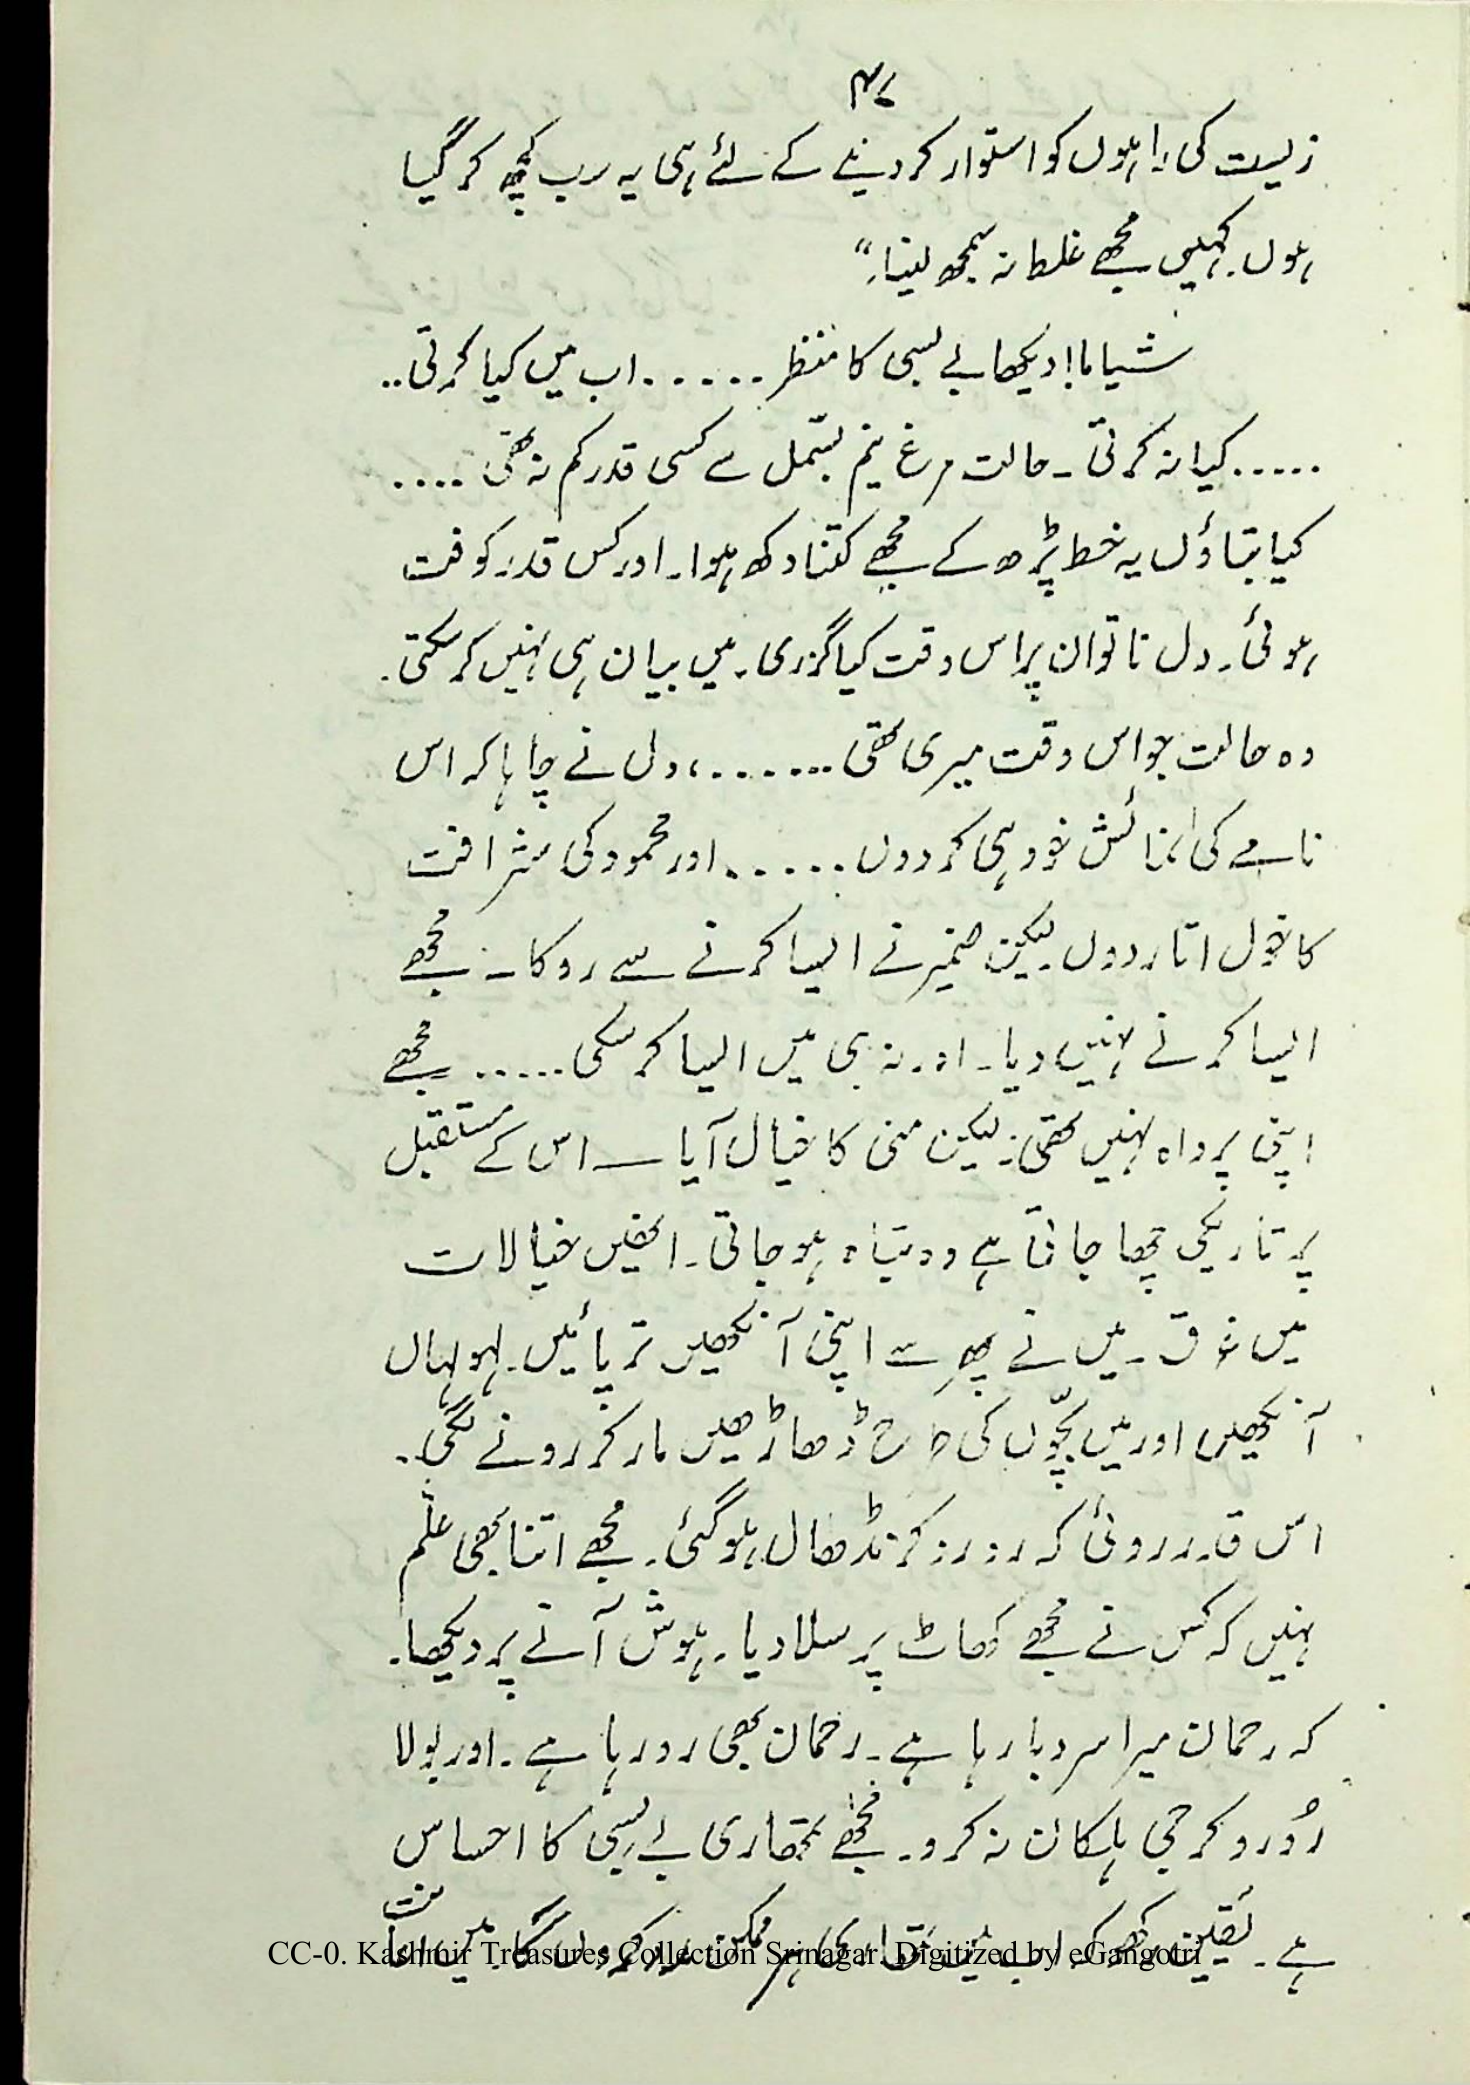 ۴۷
زیست کی راہوں کو استوار کر دینے کے لئے ہی یہ سب کچھ کر گیا
ہوں۔ کہیں مجھے غلط نہ سمجھ لینا۔"
شیاما! دیکھا بے بسی کا منظر ...... اب میں کیا کرتی ..
..... کیا نہ کرتی۔ حالت مرغ نیم بسمل سے کسی قدر کم نہ تھی ....
کیا بتاؤں یہ خط پڑھ کے مجھے کتنا دکھ ہوا۔ اور کس قدر کوفت
ہوئی۔ دل ناتواں پر اس وقت کیا گزری۔ میں بیان ہی نہیں کر سکتی۔
وہ حالت جو اس وقت میری تھی .......، دل نے چاہا کہ اس
نامے کی نمائش خود ہی کر دوں ...... اور محمود کی شرافت
کا خول اتار دوں۔ لیکن ضمیر نے ایسا کرنے سے روکا۔ مجھے
ایسا کرنے نہیں دیا۔ اور نہ ہی میں ایسا کر سکی ..... مجھے
اپنی پرواہ نہیں تھی۔ لیکن منی کا خیال آیا — اس کے مستقبل
پر تاریکی چھا جاتی ہے وہ تباہ ہو جاتی۔ انھیں خیالات
میں غرق۔ میں نے پھر سے اپنی آنکھیں ترپائیں۔ لہولہان
آنکھیں اور میں بچّوں کی طرح ڈھاڑھیں مار کر رونے لگی۔
اس قدر روئی کہ رو رو کر نڈھال ہو گئی۔ مجھے اتنا بھی علم
نہیں کہ کس نے مجھے کھاٹ پر سلا دیا۔ ہوش آنے پر دیکھا۔
کہ رحمان میرا سر دبا رہا ہے۔ رحمان بھی رو رہا ہے۔ اور بولا
رُو رو کر جی ہلکان نہ کرو۔ مجھے تمھاری بے بسی کا احساس
ہے۔ یقین رکھو کہ اب میں تمھاری ہر ممکن مدد کروں گا۔ میں
CC-0. Kashmir Treasures Collection Srinagar. Digitized by eGangotri